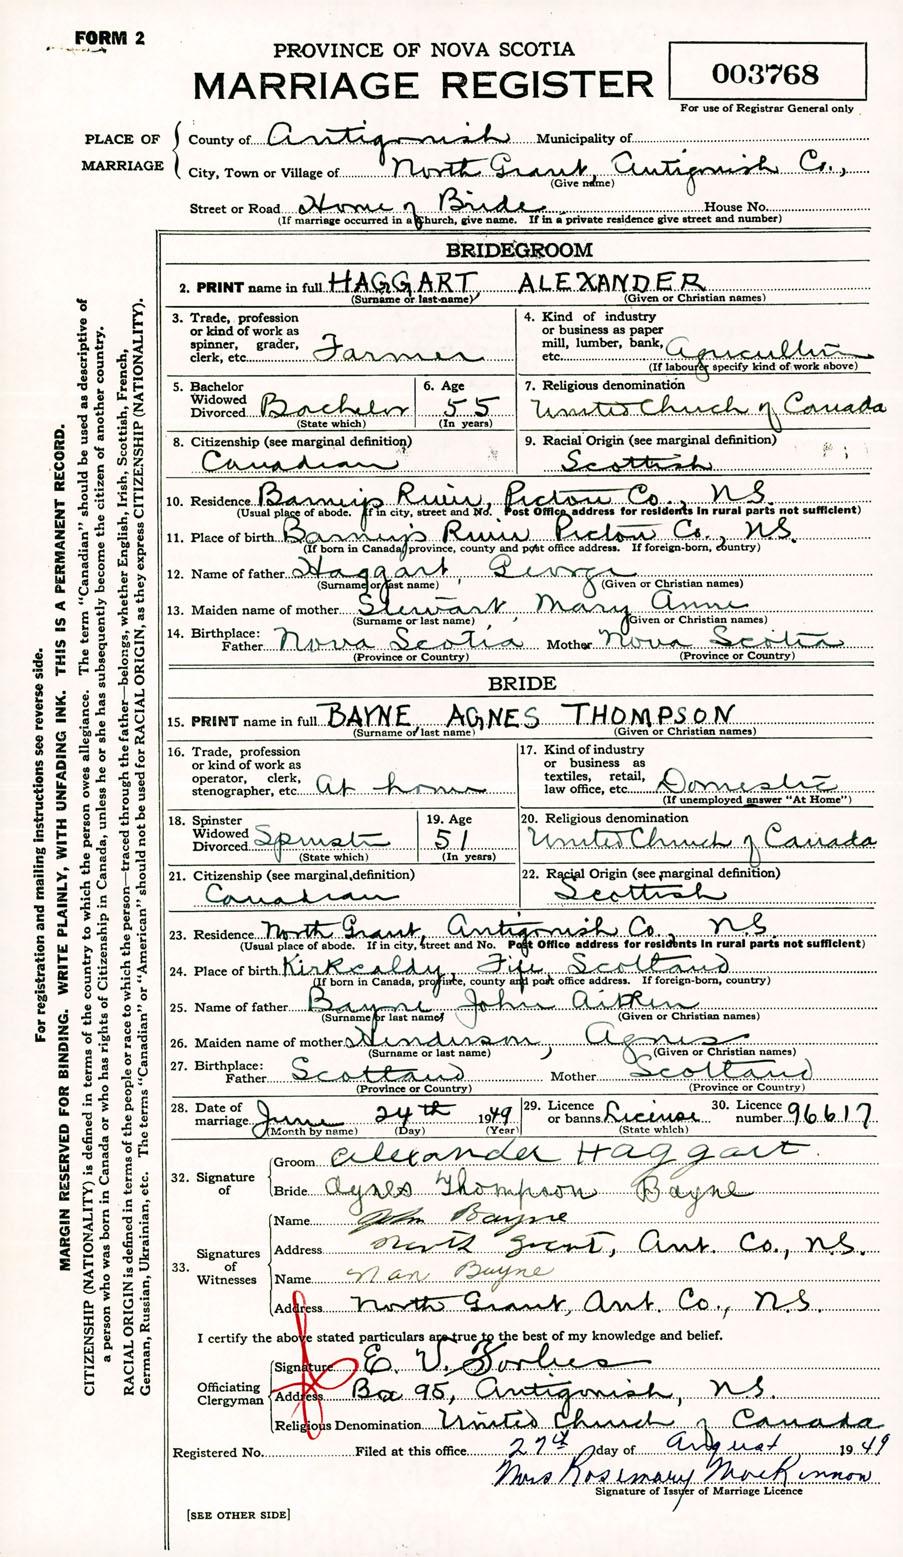 FORM 2
PROVINCE OF NOVA SCOTIA
MARRIAGE REGISTER
003768
For use of Registrar General only
PLACE OF MARRIAGE
County of Antigonish Municipality of
City, Town or Village of North Grant, Antigonish Co.,
(Give name)
Street or Road Home of Bride House No.
(If marriage occurred in a church, give name. If in a private residence give street and number)
BRIDEGROOM
2. PRINT name in full HAGGART ALEXANDER
(Surname or last name) (Given or Christian names)
3. Trade, profession or kind of work as spinner, grader, clerk, etc. Farmer
4. Kind of industry or business as paper mill, lumber, bank, etc. Agriculture
(If labourer specify kind of work above)
5. Bachelor Widowed Divorced Bachelor
(State which)
6. Age 55
(In years)
7. Religious denomination
United Church of Canada
8. Citizenship (see marginal definition)
Canadian
9. Racial Origin (see marginal definition)
Scottish
10. Residence Barneys River, Pictou Co., N.S.
(Usual place of abode. If in city, street and No. Post Office address for residents in rural parts not sufficient)
11. Place of birth Barneys River Pictou Co., N.S.
(If born in Canada, province, county and post office address. If foreign-born, country)
12. Name of father Haggart, George
(Surname or last name) (Given or Christian names)
13. Maiden name of mother Stewart, Mary Anne
(Surname or last name) (Given or Christian names)
14. Birthplace: Father Nova Scotia Mother Nova Scotia
(Province or Country) (Province or Country)
BRIDE
15. PRINT name in full BAYNE, AGNES THOMPSON
(Surname or last name) (Given or Christian names)
16. Trade, profession or kind of work as operator, clerk, stenographer, etc. At home
17. Kind of industry or business as textiles, retail, law office, etc. Domestic
(If unemployed answer "At Home")
18. Spinster Widowed Divorced Spinster
(State which)
19. Age 51
(In years)
20. Religious denomination
United Church of Canada
21. Citizenship (see marginal definition)
Canadian
22. Racial Origin (see marginal definition)
Scottish
23. Residence North Grant, Antigonish Co., N.S.
(Usual place of abode. If in city, street and No. Post Office address for residents in rural parts not sufficient)
24. Place of birth Kirkcaldy, Fife Scotland
(If born in Canada, province, county and post office address. If foreign-born, country)
25. Name of father Bayne John Aitken
(Surname or last name) (Given or Christian names)
26. Maiden name of mother Henderson, Agnes
(Surname or last name) (Given or Christian names)
27. Birthplace: Father Scotland Mother Scotland
(Province or Country) (Province or Country)
28. Date of marriage June 24th 1949
(Month by name) (Day) (Year)
29. Licence or banns License
(State which)
30. Licence number 96617
32. Signature of
Groom Alexander Haggart.
Bride Agnes Thompson Bayne
33. Signatures of Witnesses
Name John Bayne
Address North Grant, Ant. Co., N.S.
Name Nan Bayne
Address North Grant, Ant. Co., N.S.
I certify the above stated particulars are true to the best of my knowledge and belief.
Officiating Clergyman
Signature E. V. Forbes
Address Box 95, Antigonish, N.S.
Religious Denomination United Church of Canada
Registered No. Filed at this office 27th day of August 1949
Mrs Rosemary MacKinnon
Signature of Issuer of Marriage Licence
[SEE OTHER SIDE]
For registration and mailing instructions see reverse side.
MARGIN RESERVED FOR BINDING. WRITE PLAINLY, WITH UNFADING INK. THIS IS A PERMANENT RECORD.
CITIZENSHIP (NATIONALITY) is defined in terms of the country to which the person owes allegiance. The term "Canadian" should be used as descriptive of
a person who was born in Canada or who has rights of Citizenship in Canada, unless he or she has subsequently become the citizen of another country.
RACIAL ORIGIN is defined in terms of the people or race to which the person—traced through the father—belongs, whether English, Irish, Scottish, French,
German, Russian, Ukrainian, etc. The terms "Canadian" or "American" should not be used for RACIAL ORIGIN, as they express CITIZENSHIP (NATIONALITY).